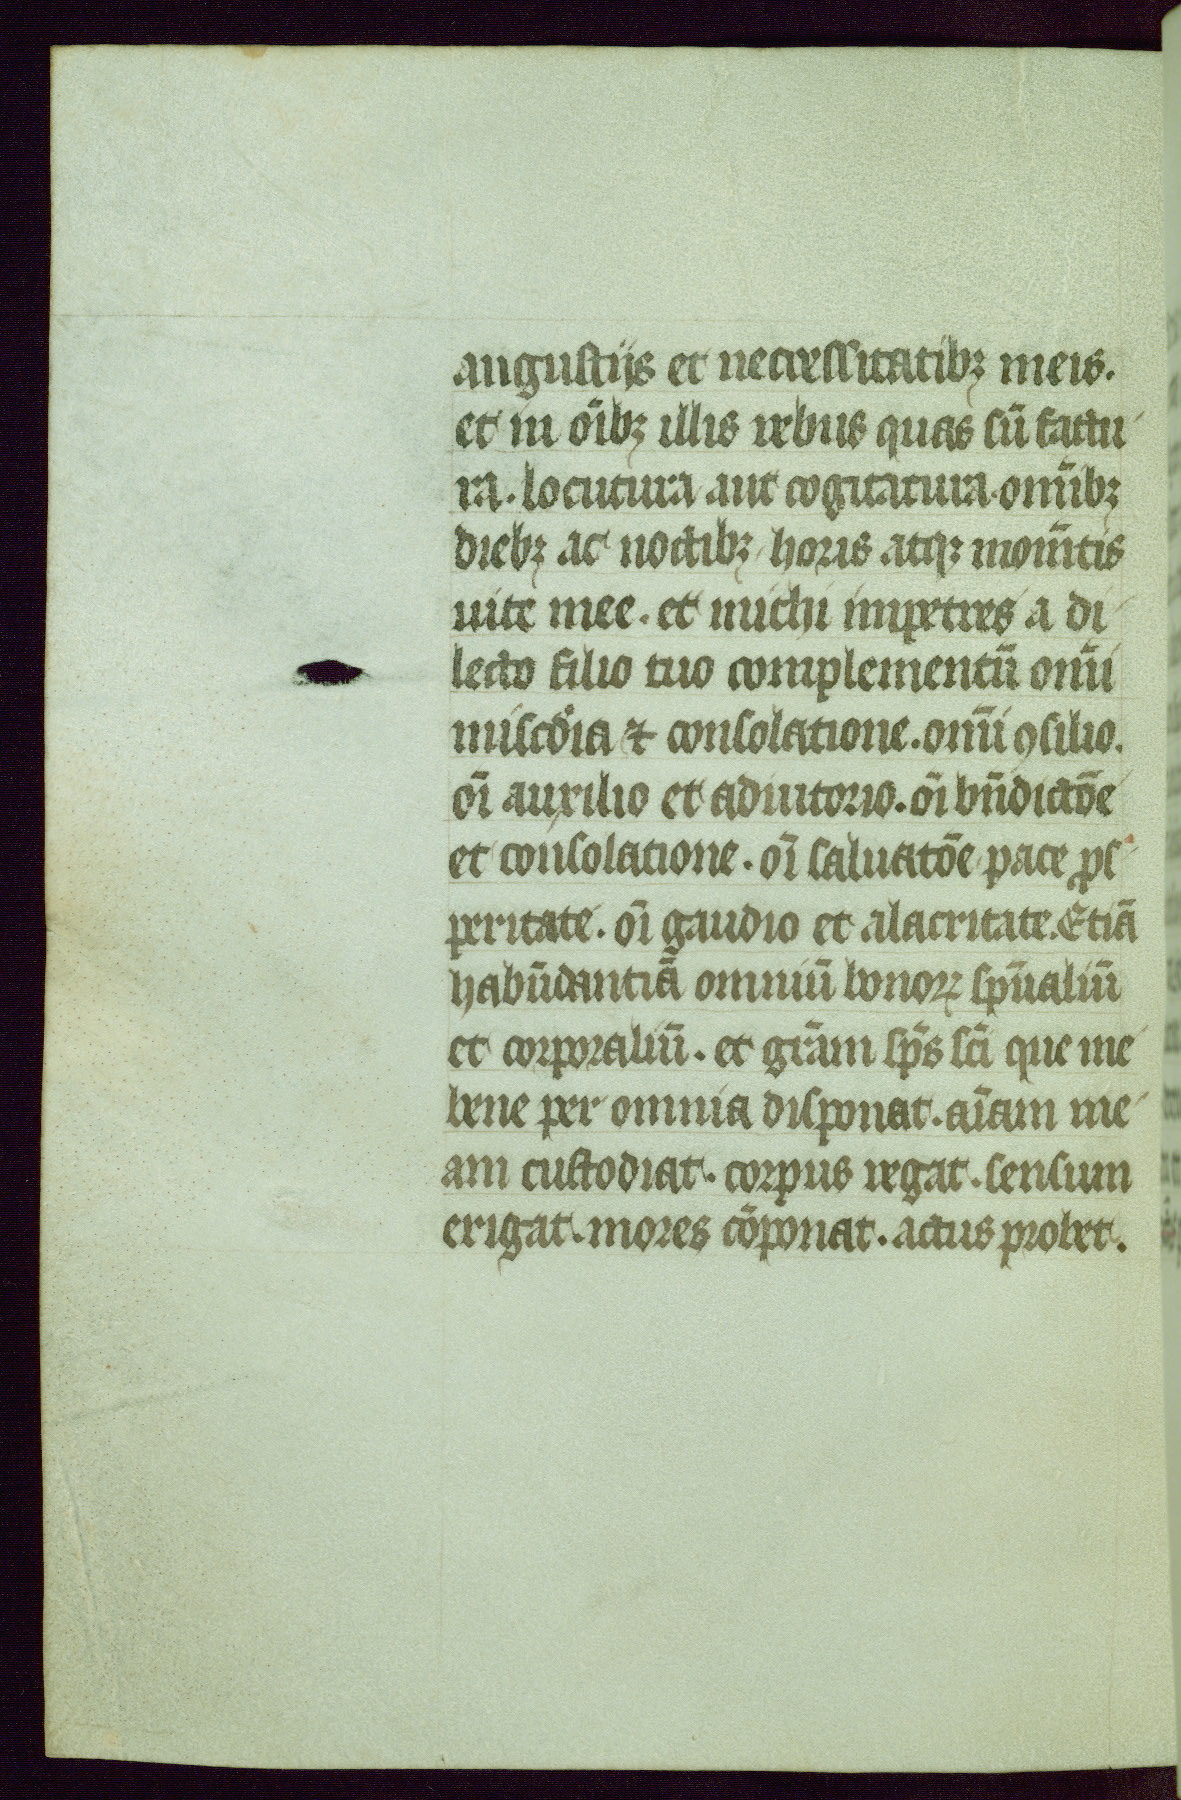 angustijs et necessitatibꝫ meis.
et in oı̄bꝫ illis rebus quas sū factu
ra. locutura aut cogitatura. omı̄bꝫ
diebꝫ ac noctibꝫ horis atqꝫ mom̄tis
uite mee. et michi impetres a di
lecto filio tuo complementū omı̄
misc̄dia ⁊ consolatione. omı̄ ꝯsilio.
oı̄ auxilio et adiutorio. oı̄ bn̄dictōe
et consolatione. oı̄ saluatōe pace ꝓs
peritate. oı̄ gaudio et alacritate. Etiā
habūdantiā omniū bonoꝝ sp̄ualiū
et corporaliū. et gr̄am sp̄s sc̄i que me
bene per omnia disponat. aı̄am me
am custodiat. corpus regat. sensum
erigat. mores cōponat. actus probet.